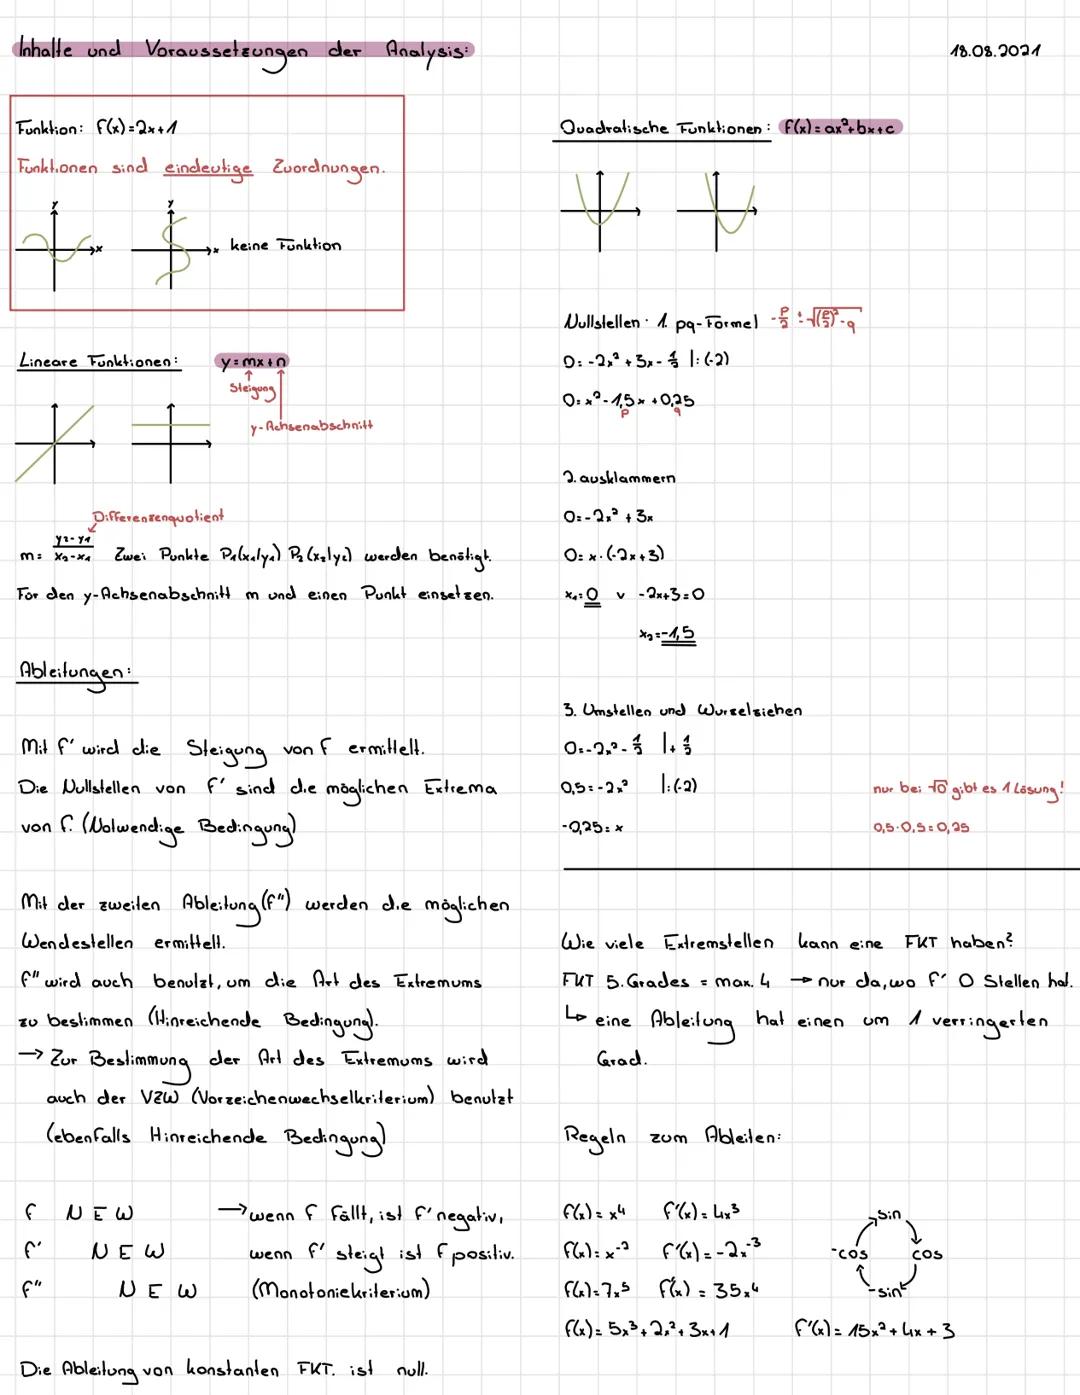 Inhalte und Voraussetzungen der Analysis:
18.08.2021
Funktion: f(x)=2x+1
Funktionen sind eindeutige Zuordnungen.
y
x
y
x
keine Funktion
Lineare Funktionen: y=mx+n
Steigung
y-Achsenabschnitt
Differenzenquotient
m= y₂-y₁/x₂-x₁ Zwei Punkte P₁(x₁|y₁) P₂(x₂|y₂) werden benötigt.
Für den y-Achsenabschnitt m und einen Punkt einsetzen.
Ableitungen:
Mit f' wird die Steigung von f ermittelt.
Die Nullstellen von f' sind die möglichen Extrema
von f. (Notwendige Bedingung)
Mit der zweiten Ableitung (f") werden die möglichen
Wendestellen ermittelt.
f" wird auch benutzt, um die Art des Extremums
zu bestimmen (Hinreichende Bedingung).
→ Zur Bestimmung der Art des Extremums wird
auch der VZW (Vorzeichenwechselkriterium) benutzt
(ebenfalls Hinreichende Bedingung)
f N E W → wenn f fällt, ist f' negativ,
f' N E W wenn f' steigt ist f positiv.
f" N E W (Monotoniekriterium)
Die Ableitung von konstanten FKT. ist null.
Quadratische Funktionen: f(x)=ax²+bx+c
Nullstellen: 1. pq-Formel -p/2 ± √(p/2)²-q
0=-2x²+3x-1/2 |:(-2)
0=x²-1,5x+0,25
p q
2. ausklammern
0=-2x²+3x
0=x·(-2x+3)
x₁=0 v -2x+3=0
x₂=-1,5
3. Umstellen und Wurzelziehen
0=-2x²-1/2 |+1/2
0,5=-2x² |:(-2)
nur bei √0 gibt es 1 Lösung!
-0,25=x
0,5·0,5=0,25
Wie viele Extremstellen kann eine FKT haben?
FKT 5. Grades = max. 4 → nur da, wo f' 0 Stellen hat.
↳ eine Ableitung hat einen um 1 verringerten
Grad.
Regeln zum Ableiten:
f(x)=x⁴ f'(x)=4x³
f(x)=x⁻² f'(x)=-2x⁻³
f(x)=7x⁵ f'(x)=35x⁴
f(x)=5x³+2x²+3x+1 f'(x)=15x²+4x+3
sin
-cos cos
-sin